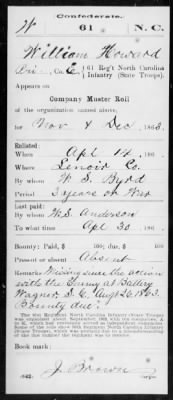 Confederate.
H 61 N.C.
William Howard
Co. E, 61 Reg't North Carolina
Infantry (State Troops).
Appears on
Company Muster Roll
of the organization named above,
for Nov & Dec, 1863.
Enlisted:
When Apl 14, 186 .
Where Lenoir Co.
By whom W. S. Byrd
Period 3 years or War
Last paid:
By whom W. S. Anderson
To what time Apl 30, 186 .
Bounty: Paid, $ 100; due, $ 100
Present or absent Absent
Remarks: Missing since the action
with the Enemy at Battery
Wagner, S. C. Augt 26 1863.
Bounty due.
Book mark:
J. Brown
(642) Copyist.